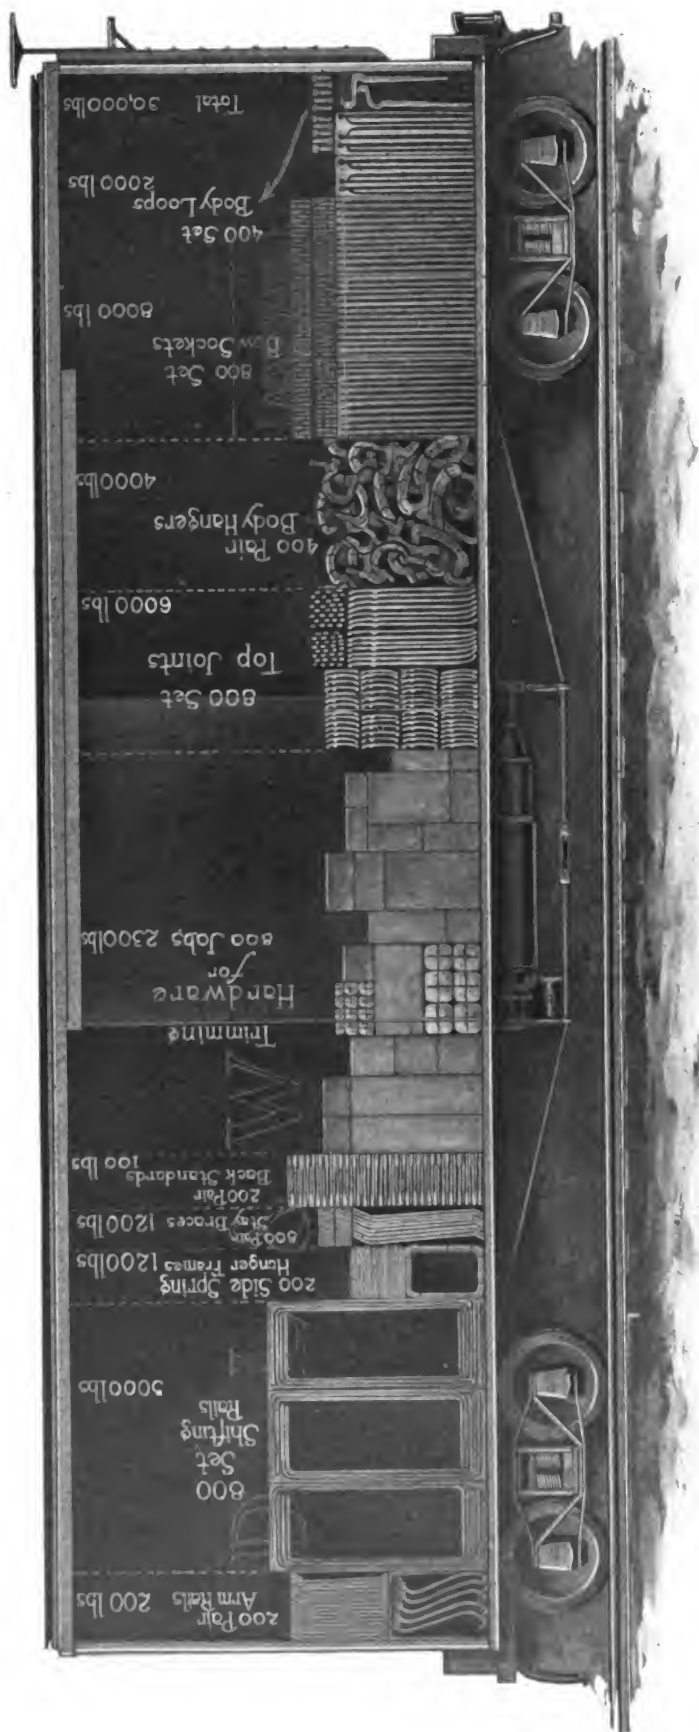 200 Pair
Arm Rails 200 lbs
800
Set
Shifting
Rails
5000 lbs
200 Side Spring
Hanger Frames 1200 lbs
800 Pair
Stay Braces 1200 lbs
200 Pair
Back Standards 100 lbs
W
Trimming
Hardware
for
800 Jobs, 2300 lbs
800 Set
Top Joints
6000 lbs
400 Pair
Body Hangers
4000 lbs
800 Set
Bow Sockets
8000 lbs
400 Set
Body Loops
2000 lbs
Total 30,000 lbs